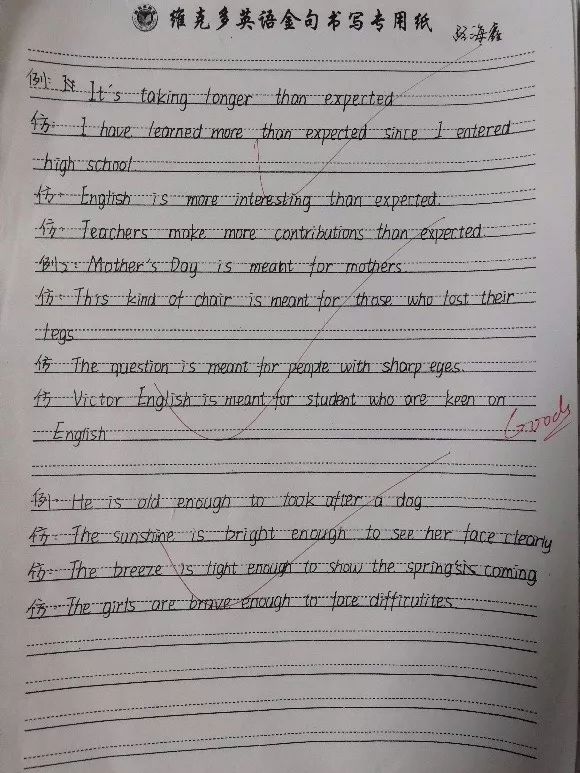 维克多英语金句书写专用纸
例: It's taking longer than expected
仿: I have learned more than expected since I entered
high school
仿: English is more interesting than expected.
仿: Teachers make more contributions than expected
例2: Mother's Day is meant for mothers.
仿: This kind of chair is meant for those who lost their
legs
仿 The question is meant for people with sharp eyes.
仿 Victor English is meant for student who are keen on
English
Good
例: He is old enough to look after a dog
仿: The sunshine is bright enough to see her face clearly
仿: The breeze is light enough to show the spring's coming
仿: The girls are brave enough to face difficulites.